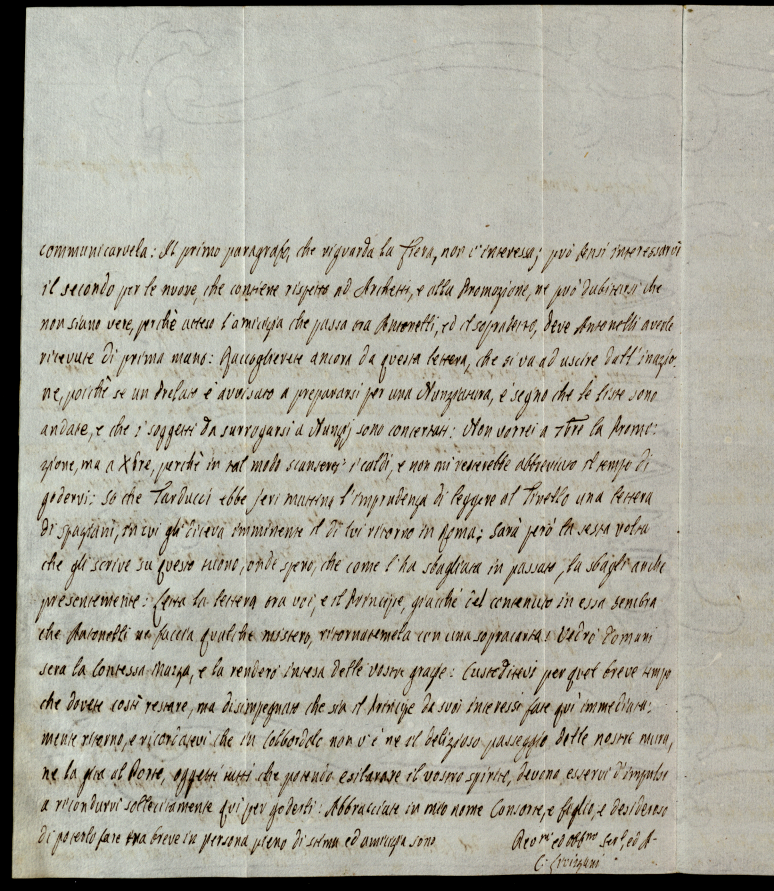 communicarvela: Il primo paragrafo, che riguarda la fiera, non c'interessa; può bensì interessarci
il secondo per le nuove, che contiene rispetto ad Archetti, e alla Promozione, ne può dubitarsi che
non siano vere, perchè atteso l'amicizia che passa tra Antonelli, ed il sopradetto, deve Antonelli averle
ricevute di prima mano: Raccoglierete ancora da questa lettera, che si va ad uscire dall'inazio:
ne, poichè se un Prelato è avvisato a prepararsi per una Nunziatura, è segno che le liste sono
andate, e che i soggetti da surrogarsi a Nunzj sono concertati: Non vorrei a 7bre la Promo:
zione, ma a Xbre, perchè in tal modo scanserei i caldi, e non mi verrebbe abbreviato il tempo di
godervi: so che Tarducci ebbe jeri mattina l'imprudenza di leggere al Tivello una lettera
di Spagiani, in cui gli diceva imminente il di lui ritorno in Roma; sarà però la sesta volta
che gli scrive su questo tuono, onde spero, che come l'ha sbagliata in passato, la sbagli anche
presentemente: Letta la lettera tra voi, e il Principe, giacchè del contenuto in essa sembra
che Antonelli ne faccia qualche mistero, ritornatemela con una sopracarta: Vedrò domani
sera la Contessa Mazza, e la renderò intesa delle vostre grazie: Custoditevi per quel breve tempo
che dovete costì restare, ma disimpegnato che sia il Principe da suoi interessi fate quì immediata:
mente ritorno, e ricordatevi che in Colbordolo non v'è ne il delizioso passeggio delle nostre mura,
ne la gita al Porto, oggetti tutti che potendo esilarare il vostro spirito, devono esservi d'impulso
a ricondurvi sollecitamente qui per goderli: Abbracciate in mio nome Consorte, e figlio, e desideroso
di poterlo fare tra breve in persona, pieno di stima ed amicizia sono
Devo^mo ed obb^mo Ser^e, ed A^
C: